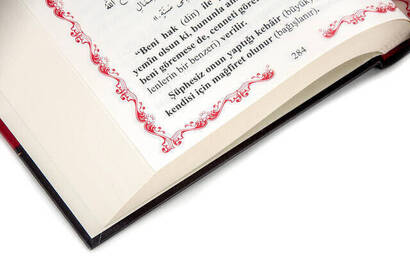 "Beni hak (din) ile
yemîn olsun ki, bununla
beni göremese de, cenneti görme
lenlerin bir benzeri) verilir.
Şüphesiz onun yaptığı kebâir (büyük
kendisi için mağfiret olunur (bağışlanır),
284